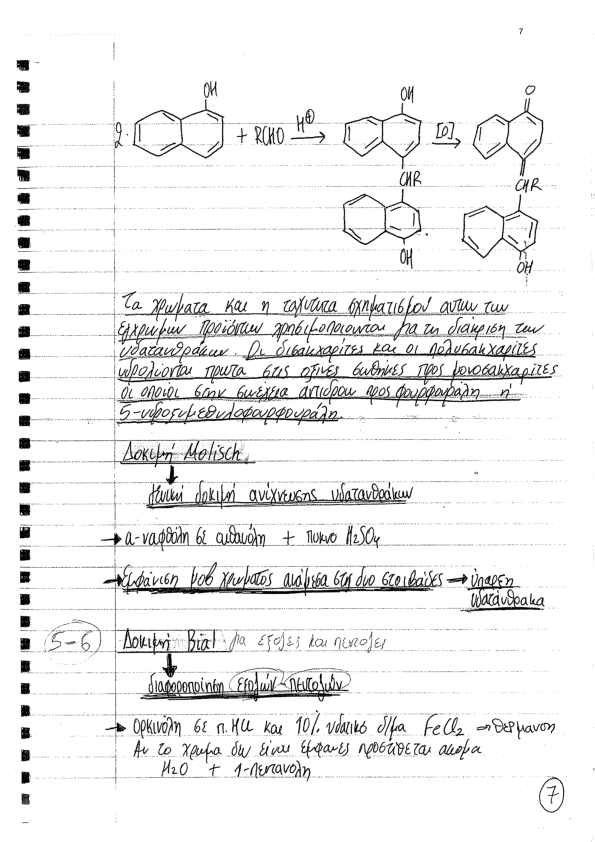 7
2. OH + RCHO H⊕ → OH CHR OH [O] → O CHR OH
Τα χρωματα και η ταχυτητα σχηματισμού αυτων των
έγχρωμων προϊόντων χρησιμοποιουνται για τη διάκριση των
υδατανθράκων. Οι δισακχαρίτες και οι πολυσακχαρίτες
υδρολύονται πρωτα στις οξινες συνθήκες προς μονοσακχαρίτες
οι οποίοι στην συνέχεια αντιδρουν προς φουρφουράλη ή
5-υδροξυμεθυλοφουρφουράλη.
Δοκιμή Molisch
Γενική δοκιμή ανίχνευσης υδατανθράκων
→ α-ναφθόλη σε αιθανόλη + πυκνο H2SO4
→ Εμφάνιση μοβ χρωματος αναμεσα στη δυο στοιβαδες → ύπαρξη
υδατάνθρακα
5-6 Δοκιμή Bial για εξοζες και πεντοζες
διαφοροποίηση εξοζών - πεντοζών
→ Ορκινόλη σε π. HCl και 10% υδατικο δ/μα FeCl2 → θέρμανση
Αν το χρωμα δεν είναι εμφανες προστίθεται ακομα
H2O + 1-πεντανόλη
7